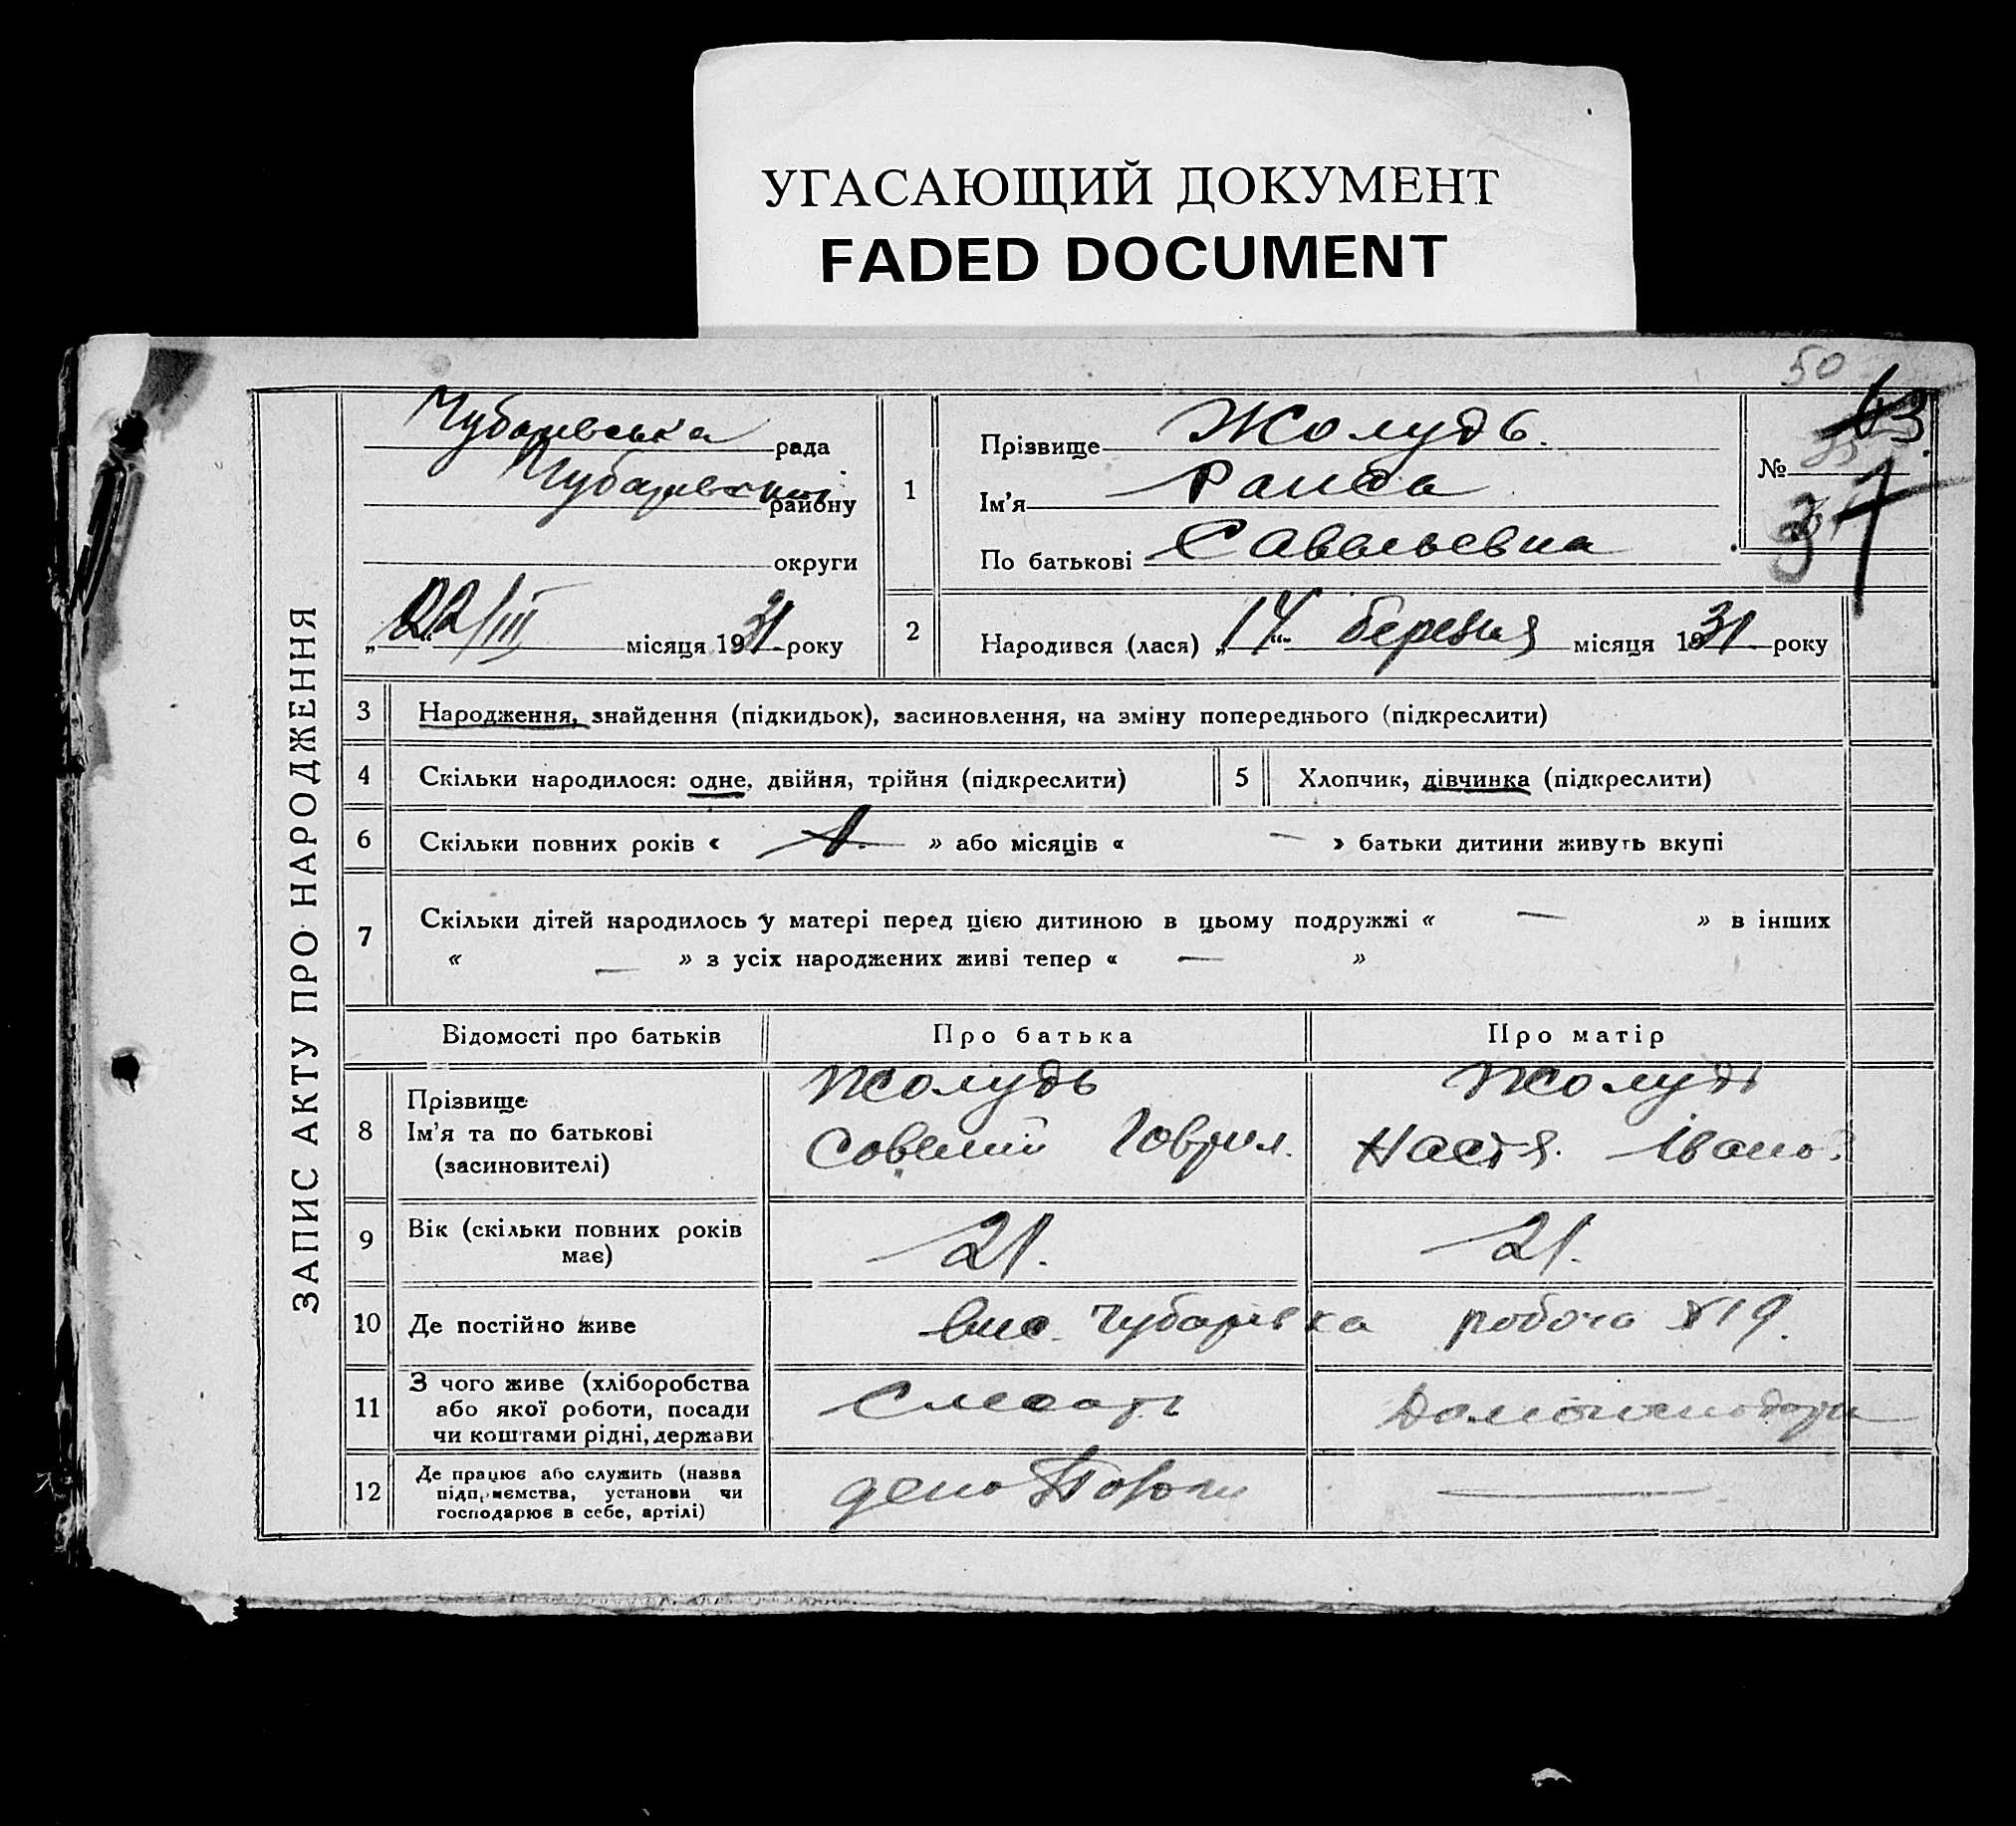 УГАСАЮЩИЙ ДОКУМЕНТ
FADED DOCUMENT
50
ЗАПИС АКТУ ПРО НАРОДЖЕННЯ
Чубарівська рада
Чубарівської району
округи
„22/III місяця 1931 року
1
Прізвище Жолудь.
Ім'я Раиса
По батькові Савельевна
№
43
37
2
Народився (лася) „14" березня місяця 1931 року
3 Народження, знайдення (підкидьок), засиновлення, на зміну попереднього (підкреслити)
4 Скільки народилося: одне, двійня, трійня (підкреслити)
5 Хлопчик, дівчинка (підкреслити)
6 Скільки повних років « 1. » або місяців « — » батьки дитини живуть вкупі
7 Скільки дітей народилось у матері перед цією дитиною в цьому подружжі « — » в інших
« — » з усіх народжених живі тепер « — »
Відомості про батьків Про батька Про матір
8 Прізвище Жолудь Жолудь
Ім'я та по батькові Совелий Говрил. Настя. Івано
(засиновителі)
9 Вік (скільки повних років 21. 21.
має)
10 Де постійно живе Чубарівка робоча №19.
11 З чого живе (хліборобства Слесарь Домогосподарка
або якої роботи, посади
чи коштами рідні, держави
12 Де працює або служить (назва депо Пологи —
підприємства, установи чи
господарює в себе, артілі)